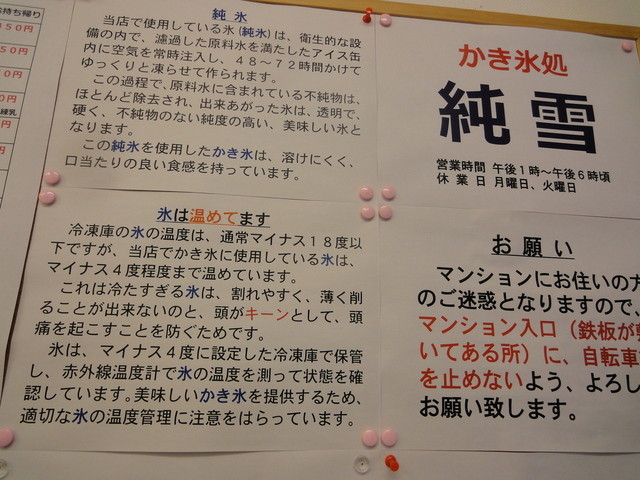 持ち帰り
５０円
５０円
０円
０円
練乳
円
円
純 氷
当店で使用している氷(純氷)は、衛生的な設
備の内で、濾過した原料水を満たしたアイス缶
内に空気を常時注入し、４８～７２時間かけて
ゆっくりと凍らせて作られます。
この過程で、原料水に含まれている不純物は、
ほとんど除去され、出来あがった氷は、透明で、
硬く、不純物のない純度の高い、美味しい氷と
なります。
この純氷を使用したかき氷は、溶けにくく、
口当たりの良い食感を持っています。
かき氷処
純 雪
営業時間 午後１時～午後６時頃
休 業 日 月曜日、火曜日
氷は温めてます
冷凍庫の氷の温度は、通常マイナス１８度以
下ですが、当店でかき氷に使用している氷は、
マイナス４度程度まで温めています。
これは冷たすぎる氷は、割れやすく、薄く削
ることが出来ないのと、頭がキーンとして、頭
痛を起こすことを防ぐためです。
氷は、マイナス４度に設定した冷凍庫で保管
し、赤外線温度計で氷の温度を測って状態を確
認しています。美味しいかき氷を提供するため、
適切な氷の温度管理に注意をはらっています。
お 願 い
マンションにお住いの方
のご迷惑となりますので、
マンション入口（鉄板が
いてある所）に、自転車
を止めないよう、よろし
お願い致します。